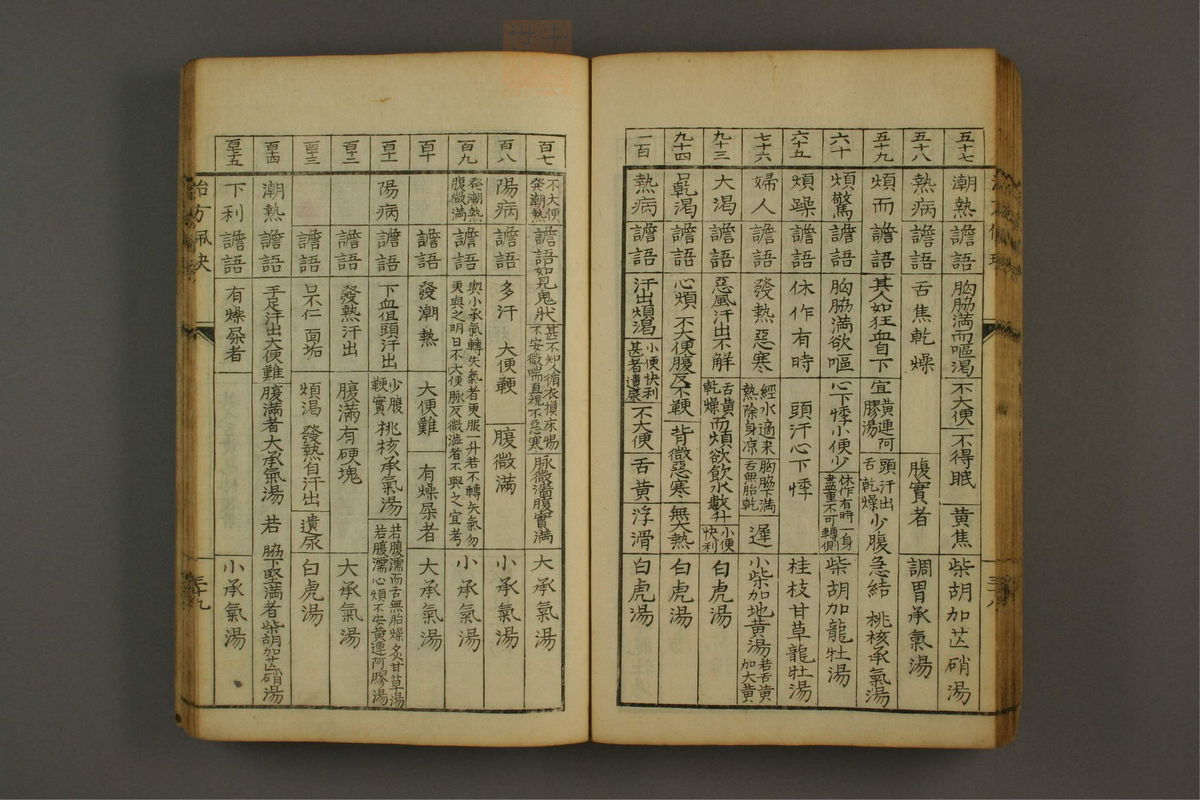 五十七 潮熱 譫語 胸脇滿而嘔渴 不大便 不得眠 黃焦 柴胡加芒硝湯
五十八 熱病 譫語 舌焦乾燥 腹實者 調胃承氣湯
五十九 煩而 譫語 其人如狂血自下 宜黃連阿膠湯 頭汗出舌乾燥 少腹急結 桃核承氣湯
六十 煩驚 譫語 胸脇滿欲嘔 心下悸小便少 休作有時一身盡重不可轉側 柴胡加龍牡湯
六十五 煩躁 譫語 休作有時 頭汗心下悸 桂枝甘草龍牡湯
七十六 婦人 譫語 發熱惡寒 經水適來熱除身凉 胸脇下滿舌無胎乾 遲 小柴加地黃湯 若舌黃加大黃
九十三 大渴 譫語 惡風汗出不解 舌黃而乾燥 煩欲飲水數升 小便快利 白虎湯
九十四 口乾渴 譫語 心煩 不大便腹反不鞕 背微惡寒 無大熱 白虎湯
一百 熱病 譫語 汗出煩渴 小便快利甚者遺尿 不大便 舌黃 浮滑 白虎湯
百七 不大便發潮熱 譫語如見鬼狀 甚不知人循衣摸床惕不安微喘直視不惡寒 脉微濇腹實滿 大承氣湯
百八 陽病 譫語 多汗 大便鞕 腹微滿 小承氣湯
百九 發潮熱腹微滿 譫語 與小承氣轉失氣者更服一升若不轉矢氣勿更與之明日不大便脉反微澁者不與之宜考 小承氣湯
百十 譫語 發潮熱 大便難 有燥屎者 大承氣湯
百十一 陽病 譫語 下血但頭汗出 少腹鞕實 桃核承氣湯 若腹濡而舌無胎燥炙甘草湯若腹濡心煩不安黃連阿膠湯
百十二 譫語 發熱汗出 腹滿有硬塊 大承氣湯
百十三 譫語 口不仁 面垢 煩渴 發熱自汗出 遺尿 白虎湯
百十四 潮熱 譫語 手足汗出大便難 腹滿者大承氣湯 若 脇下堅滿者柴胡加芒硝湯
百十五 下利 譫語 有燥屎者 小承氣湯
治方夙決
三十九